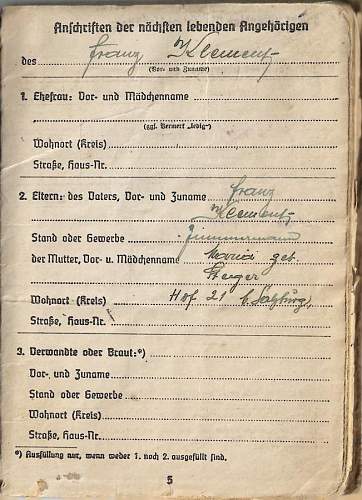 Anschriften der nächsten lebenden Angehörigen
des Franz Klement
(Vor- und Zuname)
1. Ehefrau: Vor- und Mädchenname
(ggf. Vermerk „ledig“)
Wohnort (Kreis)
Straße, Haus-Nr.
2. Eltern: des Vaters, Vor- und Zuname Franz
Klement
Stand oder Gewerbe Zimmermann
der Mutter, Vor- u. Mädchenname Maria geb.
Wohnort (Kreis) Hof 21 b. Salzburg,
Straße, Haus-Nr.
3. Verwandte oder Braut:*)
Vor- und Zuname
Stand oder Gewerbe
Wohnort (Kreis)
Straße, Haus-Nr.
*) Ausfüllung nur, wenn weder 1. noch 2. ausgefüllt sind.
5